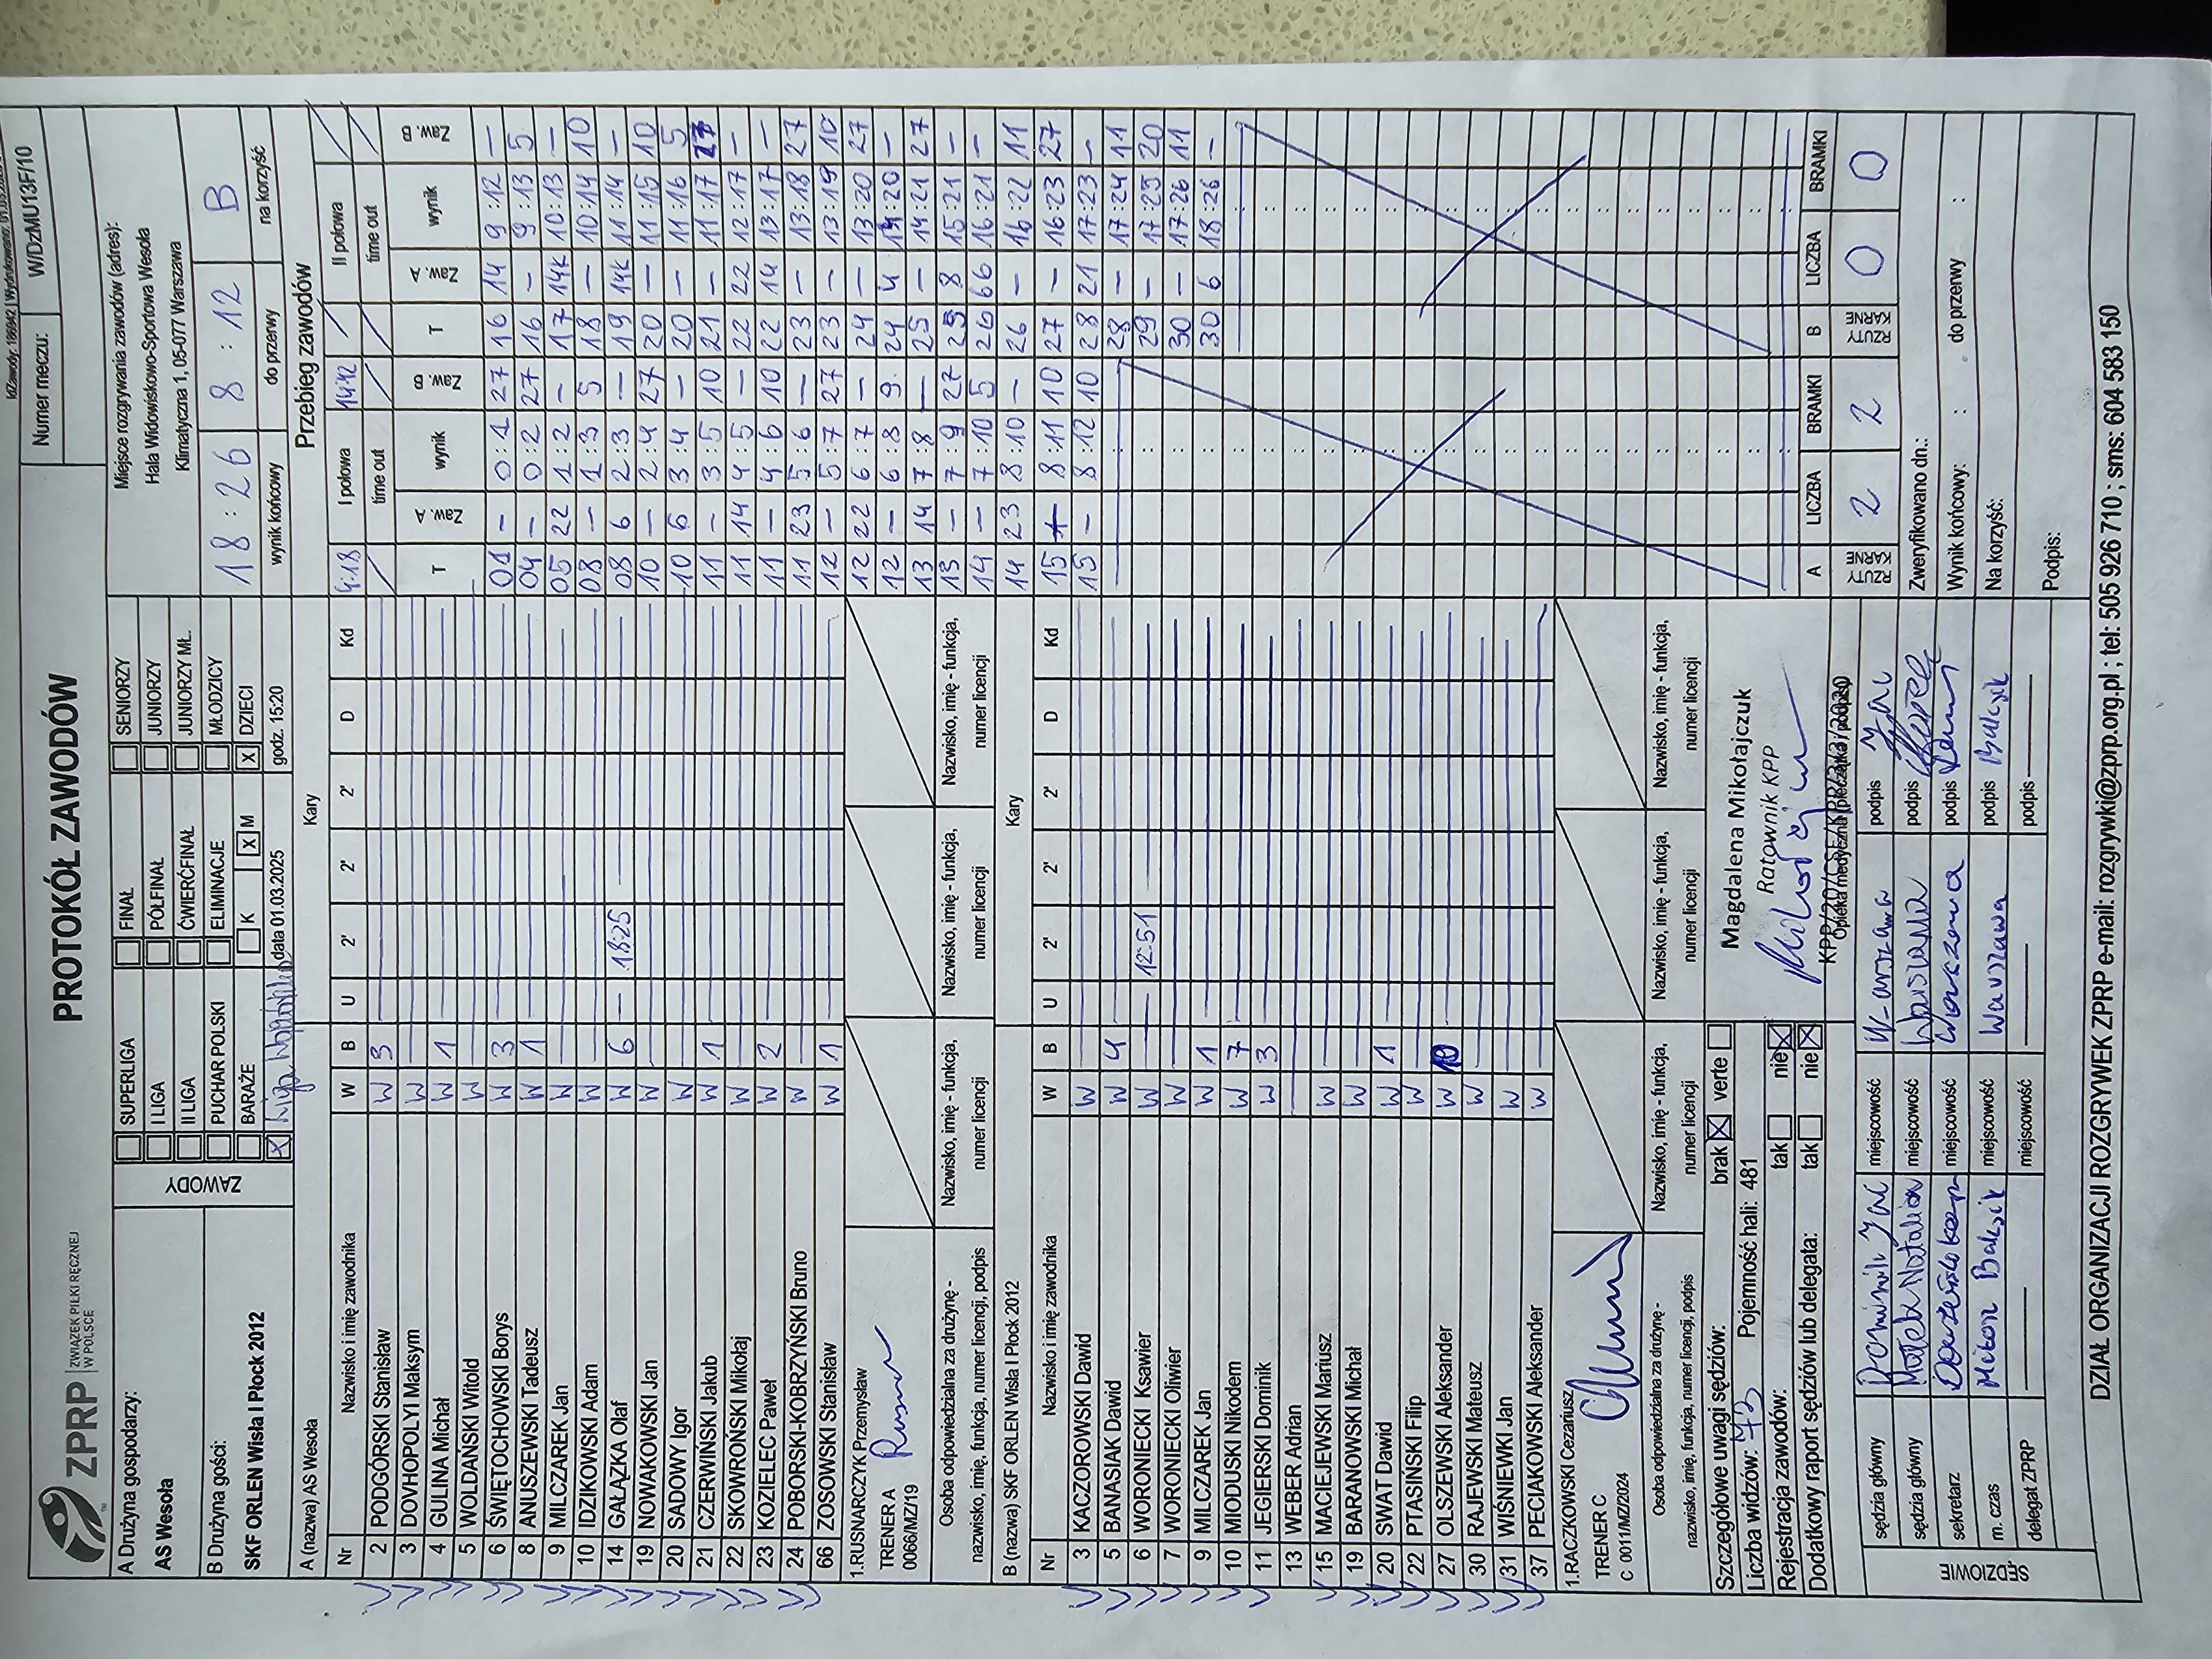 IdZawody: 186942 | Wydrukowano: 01.03.2025
ZPRP | ZWIĄZEK PIŁKI RĘCZNEJ W POLSCE
PROTOKÓŁ ZAWODÓW
Numer meczu: W/DzMU13F/10
A Drużyna gospodarzy:
AS Wesoła
B Drużyna gości:
SKF ORLEN Wisła I Płock 2012
ZAWODY
SUPERLIGA FINAŁ SENIORZY
I LIGA PÓŁFINAŁ JUNIORZY
II LIGA ĆWIERĆFINAŁ JUNIORZY MŁ.
PUCHAR POLSKI ELIMINACJE MŁODZICY
BARAŻE K X M X DZIECI
X Liga data 01.03.2025 godz. 15:20
Miejsce rozgrywania zawodów (adres):
Hala Widowiskowo-Sportowa Wesoła
Klimatyczna 1, 05-077 Warszawa
18 : 26 8 : 12 B
wynik końcowy do przerwy na korzyść
A (nazwa) AS Wesoła Kary
Nr Nazwisko i imię zawodnika W B U 2' 2' 2' D Kd
2 PODGÓRSKI Stanisław W 3
3 DOVHOPOLYI Maksym W
4 GULINA Michał W 1
5 WOLDAŃSKI Witold W
6 ŚWIĘTOCHOWSKI Borys W 3
8 ANUSZEWSKI Tadeusz W 1
9 MILCZAREK Jan W
10 IDZIKOWSKI Adam W
14 GAŁĄZKA Olaf W 6 — 18:25
19 NOWAKOWSKI Jan W
20 SADOWY Igor W
21 CZERWIŃSKI Jakub W 1
22 SKOWROŃSKI Mikołaj W
23 KOZIELEC Paweł W 2
24 POBORSKI-KOBRZYŃSKI Bruno W
66 ZOSOWSKI Stanisław W 1
1.RUSNARCZYK Przemysław
TRENER A
0066/MZ/19
Osoba odpowiedzialna za drużynę - nazwisko, imię, funkcja, numer licencji, podpis
Nazwisko, imię - funkcja, numer licencji
Nazwisko, imię - funkcja, numer licencji
Nazwisko, imię - funkcja, numer licencji
B (nazwa) SKF ORLEN Wisła I Płock 2012 Kary
Nr Nazwisko i imię zawodnika W B U 2' 2' 2' D Kd
3 KACZOROWSKI Dawid W
5 BANASIAK Dawid W 4
6 WORONIECKI Ksawier W — 12:51
7 WORONIECKI Oliwier W
9 MILCZAREK Jan W 1
10 MIODUSKI Nikodem W 7
11 JEGIERSKI Dominik W 3
13 WEBER Adrian
15 MACIEJEWSKI Mariusz W
19 BARANOWSKI Michał W
20 SWAT Dawid W 1
22 PTASIŃSKI Filip W
27 OLSZEWSKI Aleksander W 10
30 RAJEWSKI Mateusz W
31 WIŚNIEWKI Jan W
37 PECIAKOWSKI Aleksander W
1.RACZKOWSKI Cezariusz
TRENER C
C 0011/MZ/2024
Osoba odpowiedzialna za drużynę - nazwisko, imię, funkcja, numer licencji, podpis
Nazwisko, imię - funkcja, numer licencji
Nazwisko, imię - funkcja, numer licencji
Nazwisko, imię - funkcja, numer licencji
Przebieg zawodów
I połowa 4:18 14:42 II połowa
time out time out
T Zaw. A wynik Zaw. B T Zaw. A wynik Zaw. B
01 – 0:1 27 16 14 9:12 –
04 – 0:2 27 16 – 9:13 5
05 22 1:2 – 17 14k 10:13 –
08 – 1:3 5 18 – 10:14 10
08 6 2:3 – 19 14k 11:14 –
10 – 2:4 27 20 – 11:15 10
10 6 3:4 – 20 – 11:16 5
11 – 3:5 10 21 – 11:17 27
11 14 4:5 – 22 22 12:17 –
11 – 4:6 10 22 14 13:17 –
11 23 5:6 – 23 – 13:18 27
12 – 5:7 27 23 – 13:19 10
12 22 6:7 – 24 – 13:20 27
12 – 6:8 9 24 4 14:20 –
13 14 7:8 – 25 – 14:21 27
13 – 7:9 27 25 8 15:21 –
14 – 7:10 5 26 66 16:21 –
14 23 8:10 – 26 – 16:22 11
15 – 8:11 10 27 – 16:23 27
15 – 8:12 10 28 21 17:23 –
28 – 17:24 11
29 – 17:25 20
30 – 17:26 11
30 6 18:26 –
A LICZBA BRAMKI B LICZBA BRAMKI
RZUTY KARNE 2 2 RZUTY KARNE 0 0
Szczegółowe uwagi sędziów: brak X verte
Liczba widzów: 73 Pojemność hali: 481
Rejestracja zawodów: tak nie X
Dodatkowy raport sędziów lub delegata: tak nie X
Magdalena Mikołajczuk
Ratownik KPP
Opieka medyczna (pieczątka i podpis)
Zweryfikowano dn.:
Wynik końcowy: : do przerwy :
Na korzyść:
Podpis:
SĘDZIOWIE
sędzia główny miejscowość W-arszawa podpis
sędzia główny Natalia miejscowość Warszawa podpis
sekretarz miejscowość Warszawa podpis
m. czas Baksik miejscowość Warszawa podpis Baksik
delegat ZPRP — miejscowość — podpis —
DZIAŁ ORGANIZACJI ROZGRYWEK ZPRP e-mail: rozgrywki@zprp.org.pl ; tel: 505 926 710 ; sms: 604 583 150